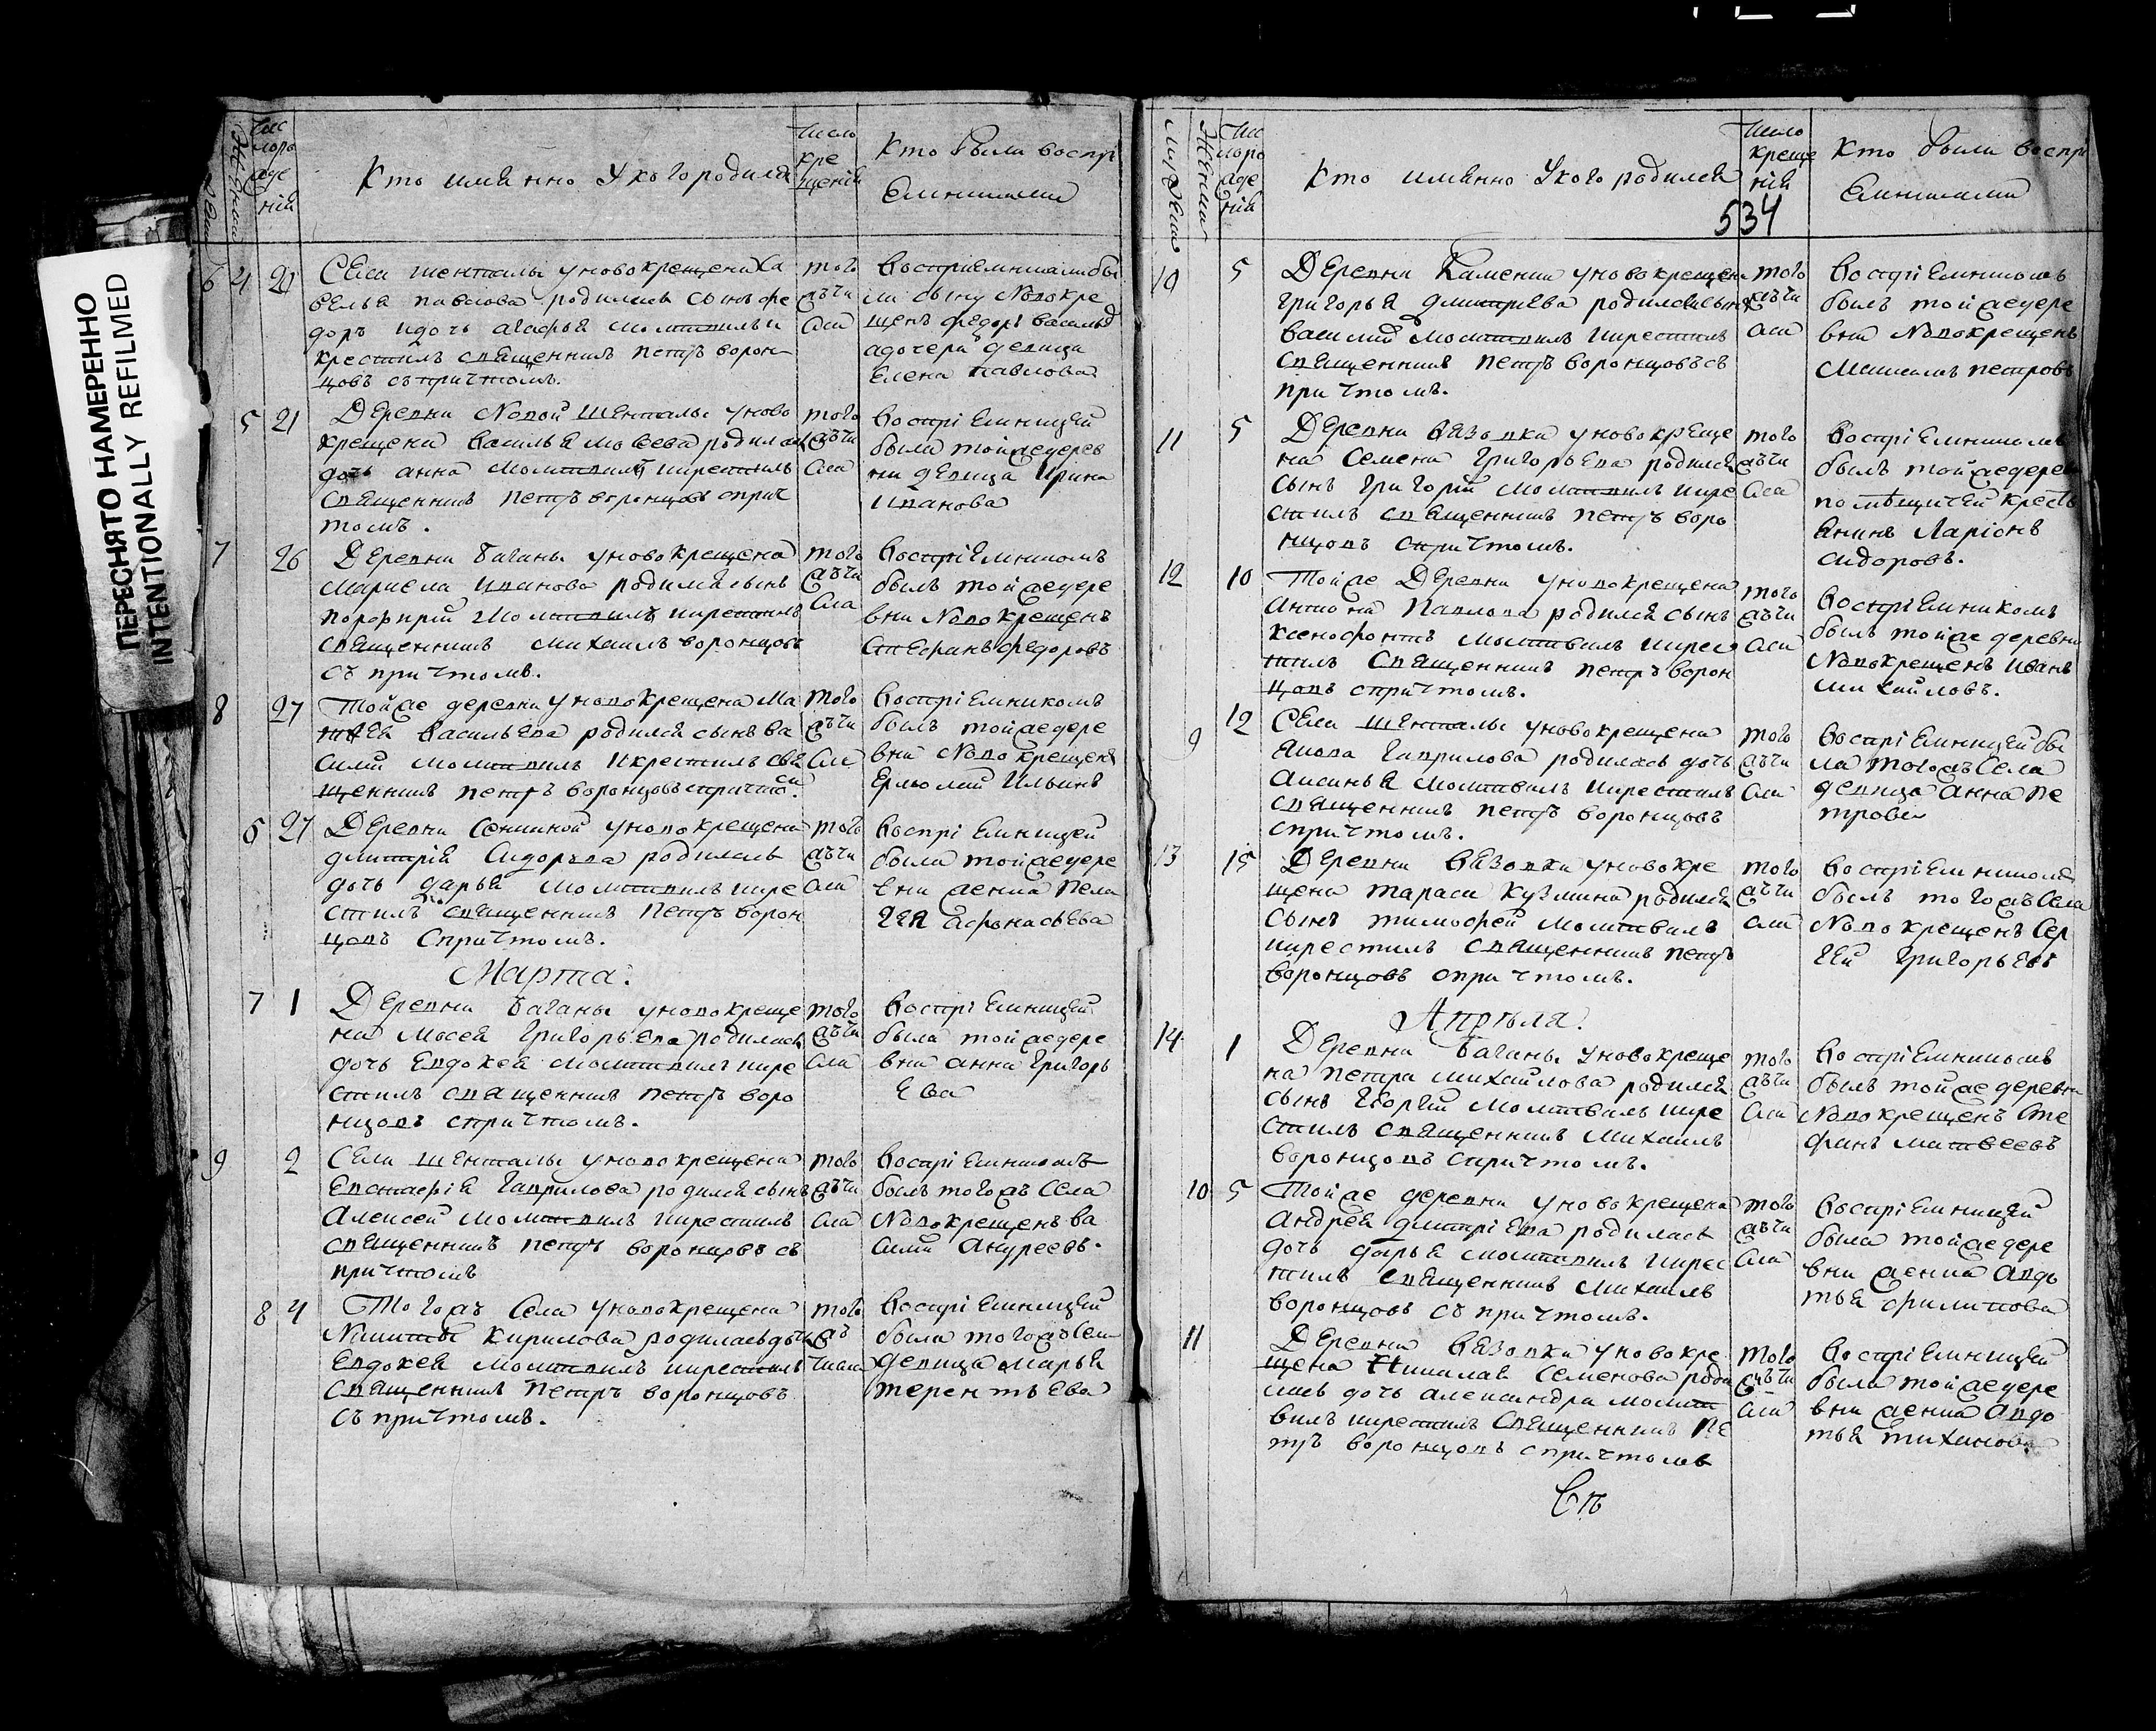 ПЕРЕСНЯТО НАМЕРЕННО
INTENTIONALLY REFILMED
Кто имянно Укого родился
Число
кре
щений
Кто были воспрі
Емниками
6 4 20
Села шенталы уновокрещена Са
велья павлова родились сынъ фе
доръ идочь агафья молитвилъ и
крестилъ священникъ петръ ворон
цовъ съ причтомъ.
того
жъ чи
сла
Воспріемниками бы
ли сыну Новокре
щенъ федоръ васильв
адочери девица
Елена павлова
5 21
Деревни Новой Шенталы уново
крещена Василья мосеева родилась
дочь анна молитвилъ икрестилъ
священникъ петръ воронцовъ сприч
томъ.
того
жъ чи
сла
воспріемницей
была тойже дерев
ни девица Ирина
Иванова
7 26
Деревни Баганы уновокрещена
Иванова родился сынъ
порфирій молитвилъ икрестилъ
священникъ михаилъ воронцовъ
съ причтомъ.
того
жъ чи
сла
воспріемникомъ
былъ тойже дере
вни Новокрещенъ
Стефанъ федоровъ
8 27
Тойже деревни уновокрещена Ма
твея васильева родился сынъ ва
силий молитвилъ икрестилъ свя
щенникъ петръ воронцовъ спричто.
того
жъ чи
сла
воспріемникомъ
былъ тойже дере
вни Новокрещенъ
Ермолай Ильинъ
6 27
Деревни Сенькиной уновокрещена
дмитрія Сидорова родилась
дочь дарья молитвилъ икре
стилъ священникъ Петръ ворон
цовъ спричтомъ.
того
жъ чи
сла
воспріемницей
была тойже дере
вни женка пела
гея афонасьева
Марта.
7 1
Деревни Баганы уновокреще
на Мосея Григорьева родилась
дочь Евдокея молитвилъ икре
стилъ священникъ петръ воро
нцовъ спричтомъ.
того
жъ чи
сла
воспріемницей
была тойже дере
вни анна Григорь
Ева
9 2
Села шенталы уновокрещена
Евстафія Гаврилова родился сынъ
Алексей молитвилъ икрестилъ
священникъ петръ воронцовъ съ
причтомъ
того
жъ чи
сла
воспріемникомъ
былъ тогожъ села
Новокрещенъ ва
силий Андреевъ.
8 4
Тогожъ Села уновокрещена
Никиты кирилова родилась дочь
Евдокея молитвилъ икрестилъ
священникъ Петръ воронцовъ
съ причтомъ.
того
жъ
числа
воспріемницей
была тогожъ сел
девица марья
терентьева
Кто имянно Укого родился
Число
креще
ній
534
Кто были воспрі
Емниками
10 5
Деревни Каменки уновокрещен
григорья дмитриева родился сынъ
василий молитвилъ икрестилъ
священникъ петръ воронцовъ съ
причтомъ.
того
жъ чи
сла
воспріемникомъ
былъ тойже дере
вни Новокрещенъ
Максимъ петровъ
11 5
Деревни вязовки уновокреще
на Семена Григорьева родился
сынъ григорій молитвилъ икре
стилъ священникъ петръ воро
нцовъ спричтомъ.
того
жъ чи
сла
воспріемникомъ
былъ тойже деревни
помѣщичей кресть
янинъ Ларіонъ
сидоровъ.
12 10
Тойже Деревни уновокрещена
Антона Павлова родился сынъ
ксенофонтъ молитвилъ икрес
тилъ священникъ петръ ворон
цовъ спричтомъ.
того
жъ чи
сла
воспріемникомъ
былъ тойже деревни
Новокрещенъ иванъ
михайловъ.
9 12
Села шенталы уновокрещена
Якова Гаврилова родилась дочь
аксинья молитвилъ икрестилъ
священникъ петръ воронцовъ
спричтомъ.
того
жъ чи
сла
воспріемницей бы
ла тогожъ села
девица анна пе
трова
13 15
Деревни вязовки уновокре
щена тараса кузмина родился
сынъ тимофей молитвилъ
икрестилъ священникъ петръ
воронцовъ спричтомъ.
того
жъ чи
сла
воспріемникомъ
былъ тогожъ села
Новокрещенъ Сер
гей григорьевъ
Апрѣля.
14 1
Деревни Баганы уновокреще
на петра михайлова родился
сынъ Георгій молитвилъ икре
стилъ священникъ Михаилъ
воронцовъ спричтомъ.
того
жъ чи
сла
воспріемникомъ
былъ тойже деревни
Новокрещенъ сте
фанъ матвеевъ
10 5
Тойже деревни уновокрещена
андрея дмитріева родилась
дочь дарья молитвилъ икрес
тилъ священникъ михаилъ
воронцовъ съ причтомъ.
того
жъ чи
сла
воспріемницей
была тойже дере
вни женка авдо
тья филипова
11
Деревни вязовки уновокре
щена Николая семенова роди
лась дочь александра молит
вилъ икрестилъ священникъ пе
тръ воронцовъ спричтомъ
того
жъ чи
сла
воспріемницей
была тойже дере
вни женка авдо
тья тиханова